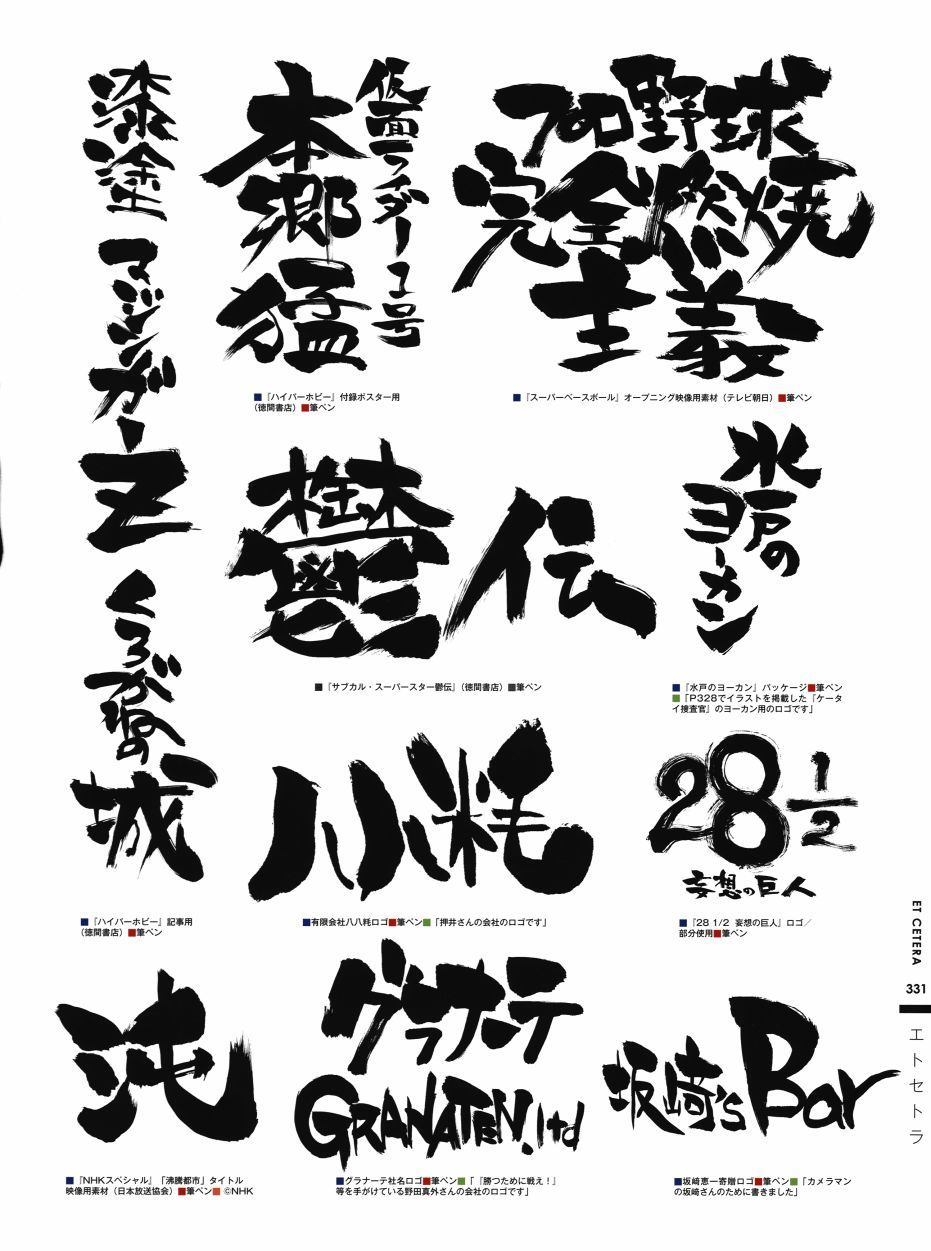 漆塗
マジンガーZ
くろがねの
城
■『ハイパーホビー』記事用
（徳間書店）■筆ペン
仮面ライダー1号
本郷
猛
■『ハイパーホビー』付録ポスター用
（徳間書店）■筆ペン
プロ野球
完全燃焼
主義
■『スーパーベースボール』オープニング映像用素材（テレビ朝日）■筆ペン
鬱伝
■『サブカル・スーパースター鬱伝』（徳間書店）■筆ペン
水戸の
ヨーカン
■『水戸のヨーカン』パッケージ■筆ペン
■「P328でイラストを掲載した『ケータ
イ捜査官』のヨーカン用のロゴです」
八八粍
■有限会社八八粍ロゴ■筆ペン■「押井さんの会社のロゴです」
28 1/2
妄想の巨人
■『28 1/2 妄想の巨人』ロゴ／
部分使用■筆ペン
沌
■『NHKスペシャル』「沸騰都市」タイトル
映像用素材（日本放送協会）■筆ペン■©NHK
グラナーテ
GRANATEN.ltd
■グラナーテ社名ロゴ■筆ペン■「『勝つために戦え！』
等を手がけている野田真外さんの会社のロゴです」
坂崎's Bar
■坂崎恵一寄贈ロゴ■筆ペン■「カメラマン
の坂崎さんのために書きました」
ET CETERA
331
エトセトラ